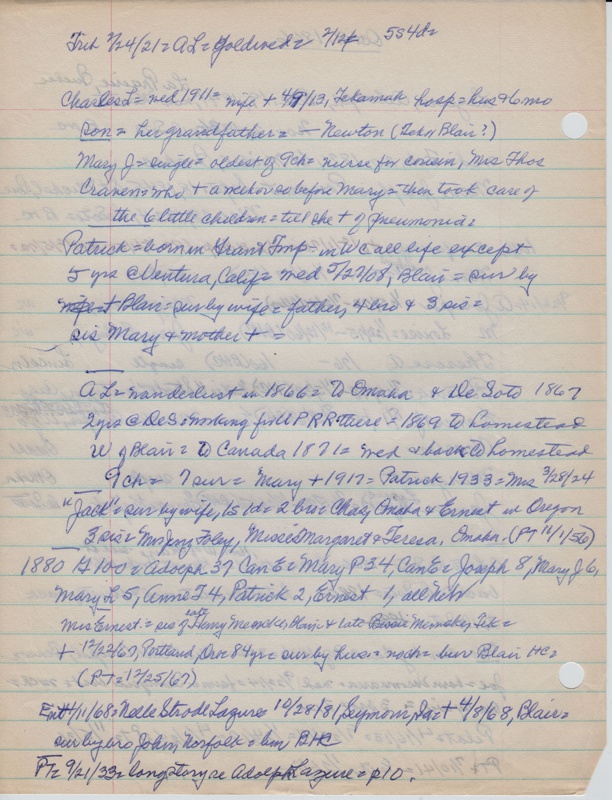 Trib 7/24/21 = AL = Goldenwed = 2/12 5S4d=
Charles L = wed 1911 = wife + 4/9/13, Tekamah hosp = hus & 6 mo
son = her grandfather = - Newton (Tek or Blair?)
Mary J = single = oldest of 9ch = nurse for cousin, Mrs Thos
Craven = who + a mo or so before Mary = then took care of
the 6 little children = till she + of pneumonia =
Patrick = born in Grant Twp = in WC all life except
5 yrs @ Ventura, Calif = wed 5/27/08, Blair = sur by
Blair = sur by wife = father, 4 bro & 3 sis =
sis Mary & mother + =
AL = wanderlust in 1866 = To Omaha & De Soto 1867
2 yrs @ DeS = working for UPRR there = 1869 to homestead
W of Blair = to Canada 1871 = wed & back to homestead
9ch = 7 sur = Mary + 1917 = Patrick 1933 = Mrs 3/28/24
"Jack" = sur by wife, 1S 1d = 2 bro = Chas, Omaha & Ernest in Oregon
3 sis = Mrs Foley, Misses Margaret & Teresa, Omaha. (PT 11/1/56)
1880 G100 = Adolph 37 CanE = Mary P 34, CanE = Joseph 8, Mary J 6,
Mary L 5, Anne T 4, Patrick 2, Ernest 1, all Neb
Mrs Ernest = sis of late Harry & late Bessie =
+ 12/22/67, Portland, Ore = 84 yr = sur by hus = noch = bur Blair HC =
(PT = 12/25/67)
Ent 4/11/68 = Nelle Strode Lazure 10/28/81, Seymour, Ia = + 4/8/68, Blair =
sur by bro John, Norfolk = bur BHC
PT = 9/21/33 = long story re Adolph Lazure = p10.